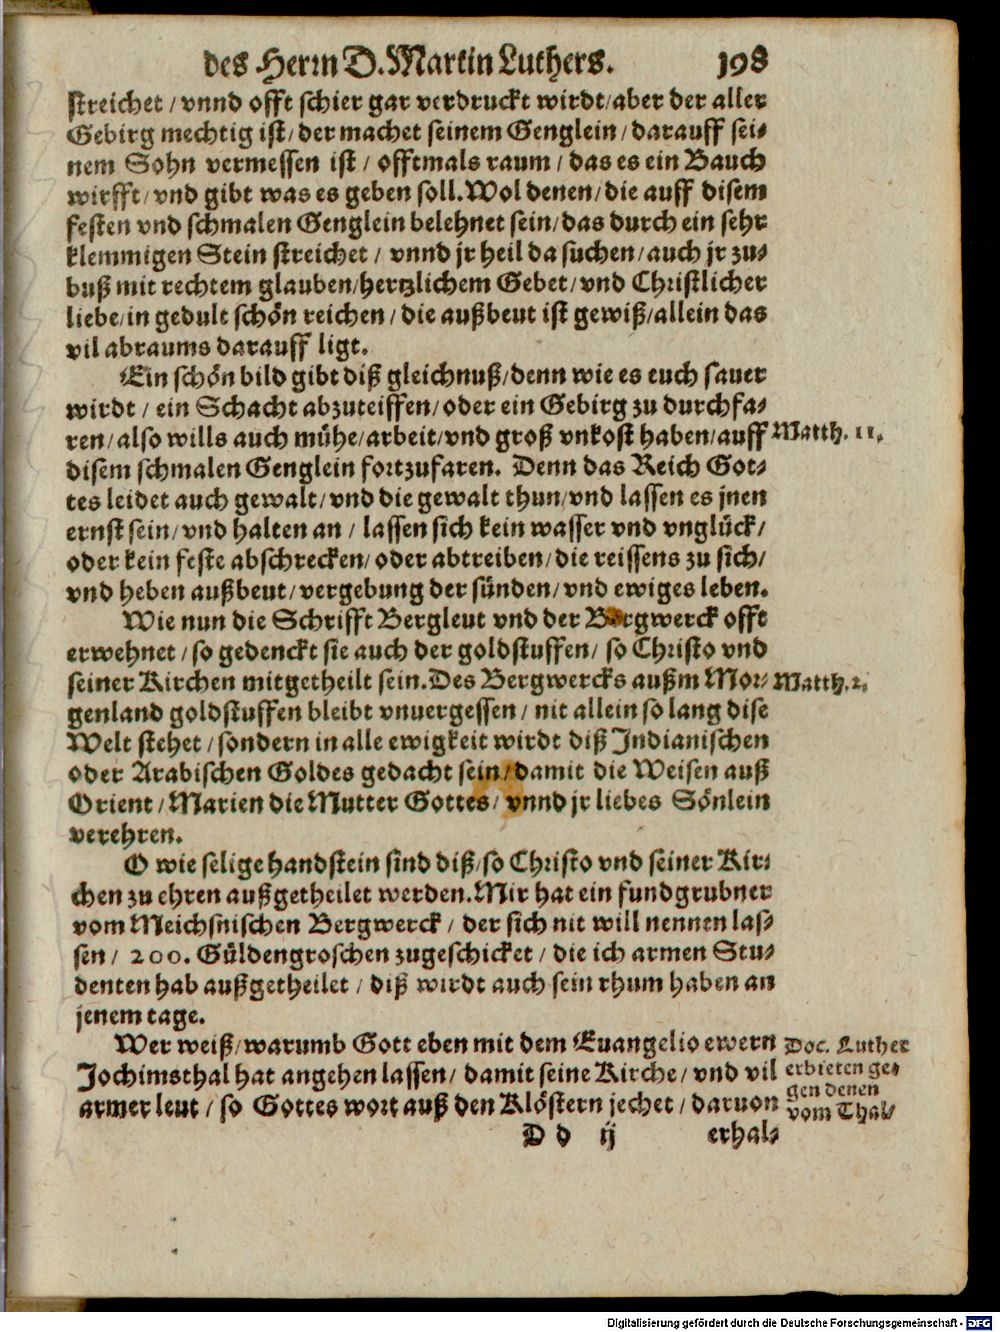 des Herrn D. Martin Luthers. 198
streichet / vnnd offt schier gar verdruckt wirdt / aber der aller
Gebirg mechtig ist / der machet seinem Genglein / darauff sei-
nem Sohn vermessen ist / offtmals raum / das es ein Bauch
wirfft / vnd gibt was es geben soll. Wol denen / die auff disem
festen vnd schmalen Genglein belehnet sein / das durch ein sehr
klemmigen Stein streichet / vnnd jr heil da suchen / auch jr zu-
buß mit rechtem glauben / hertzlichem Gebet / vnd Christlicher
liebe / in gedult schön reichen / die außbeut ist gewiß / allein das
vil abraums darauff ligt.
Ein schön bild gibt diß gleichnuß / denn wie es euch sauer
wirdt / ein Schacht abzuteiffen / oder ein Gebirg zu durchfa-
ren / also wills auch mühe / arbeit / vnd groß vnkost haben / auff
Matth. 11.
disem schmalen Genglein fortzufaren. Denn das Reich Got-
tes leidet auch gewalt / vnd die gewalt thun / vnd lassen es jnen
ernst sein / vnd halten an / lassen sich kein wasser vnd vnglück /
oder kein feste abschrecken / oder abtreiben / die reissens zu sich /
vnd heben außbeut / vergebung der sünden / vnd ewiges leben.
Wie nun die Schrifft Bergleut vnd der Bergwerck offt
erwehnet / so gedenckt sie auch der goldstuffen / so Christo vnd
seiner Kirchen mitgetheilt sein. Des Bergwercks außm Mor-
Matth. 2.
genland goldstuffen bleibt vnuergessen / nit allein so lang dise
Welt stehet / sondern in alle ewigkeit wirdt diß Indianischen
oder Arabischen Goldes gedacht sein / damit die Weisen auß
Orient / Marien die Mutter Gottes / vnnd jr liebes Sönlein
verehren.
O wie selige handstein sind diß / so Christo vnd seiner Kir-
chen zu ehren außgetheilet werden. Mir hat ein fundgrubner
vom Meichsnischen Bergwerck / der sich nit will nennen las-
sen / 200. Güldengroschen zugeschicket / die ich armen Stu-
denten hab außgetheilet / diß wirdt auch sein rhum haben an
jenem tage.
Wer weiß / warumb Gott eben mit dem Euangelio ewern
Jochimsthal hat angehen lassen / damit seine Kirche / vnd vil
armer leut / so Gottes wort auß den Klöstern jechet / daruon
Doc. Luther
erbieten ge-
gen denen
vom Thal /
D d ij erhal-
Digitalisierung gefördert durch die Deutsche Forschungsgemeinschaft - DFG